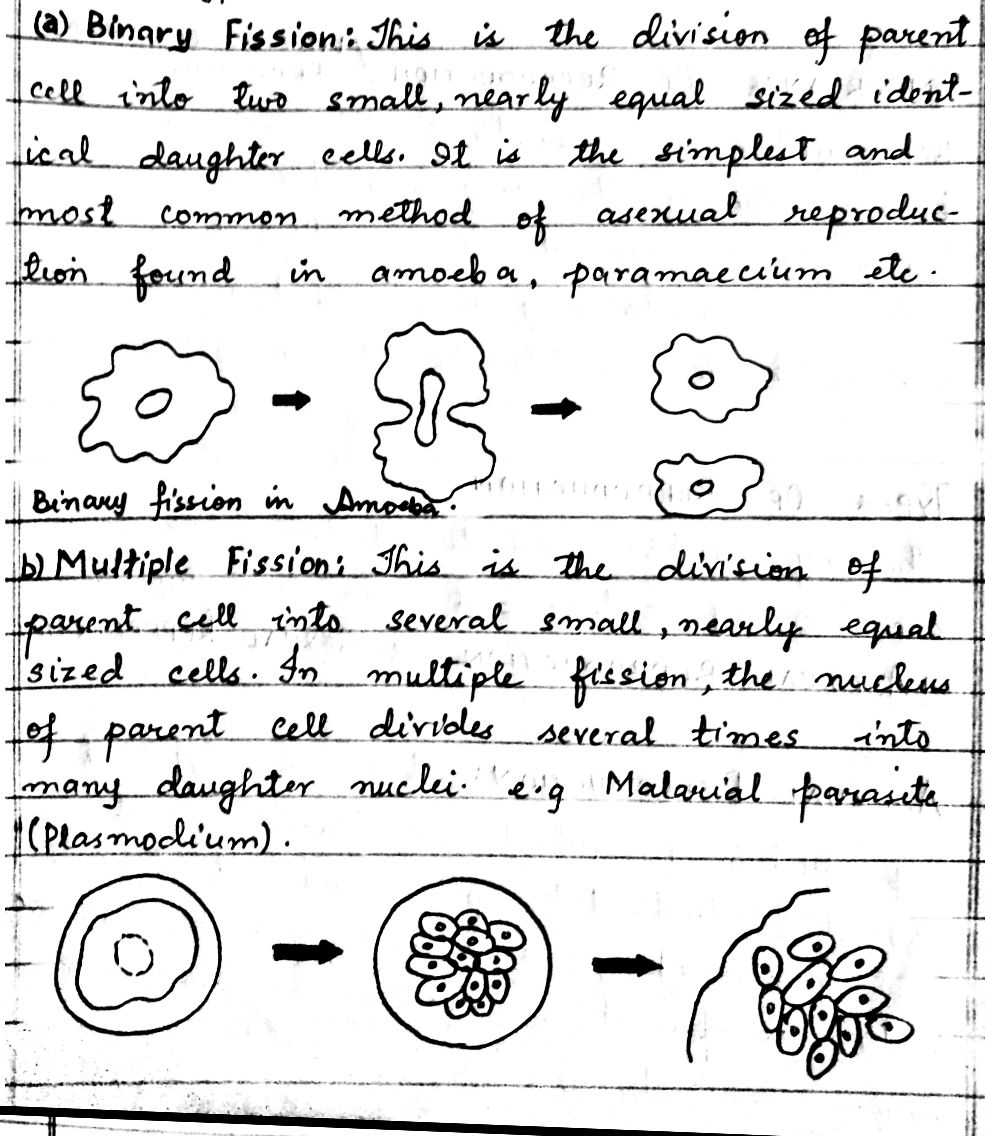 (a) Binary Fission: This is the division of parent
cell into two small, nearly equal sized ident-
ical daughter cells. It is the simplest and
most common method of asexual reproduc-
tion found in amoeba, paramaecium etc.
Binary fission in Amoeba.
b) Multiple Fission: This is the division of
parent cell into several small, nearly equal
sized cells. In multiple fission, the nucleus
of parent cell divides several times into
many daughter nuclei. e.g Malarial parasite
(Plasmodium).